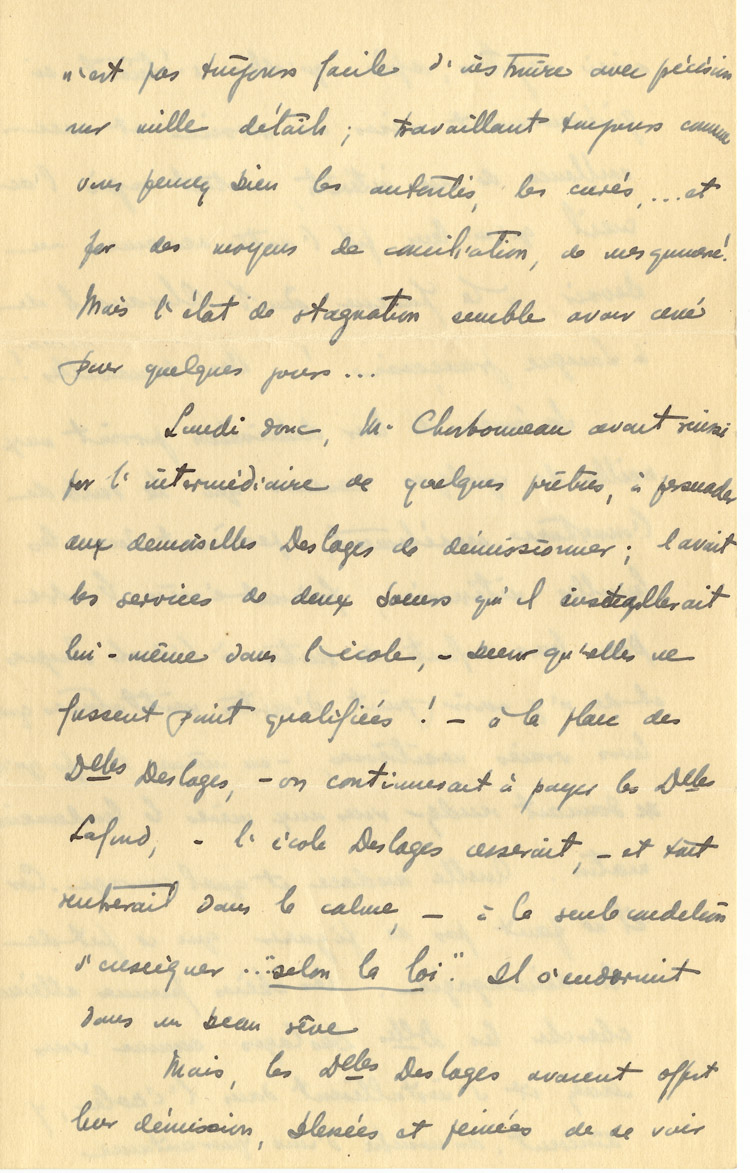 n'est pas toujours facile d'instruire avec précision
sur mille détails ; travaillant toujours comme
vous pensez bien les autorités, les curés, ... et
par des moyens de conciliation, de mesquinerie!
Mais l'état de stagnation semble avoir cessé
pour quelques jours ...
Lundi donc, M. Charbonneau avait réussi
par l'intermédiaire de quelques prêtres, à persuader
aux demoiselles Deslages de démissionner ; avait
les services de deux Soeurs qu'il installerait
lui-même dans l'école, - bien qu'elles ne
fussent point qualifiées ! - à la place des
Dlles Deslages, - on continuerait à payer les Dlles
Lafond, - l'école Deslages cesserait, - et tout
rentrerait dans le calme, - à la seule condition
d'enseigner ... "selon la loi". Il s'endormit
dans un beau rêve
Mais, les Dlles Desloges avaient offert
leur démission, blessées et peinées de se voir